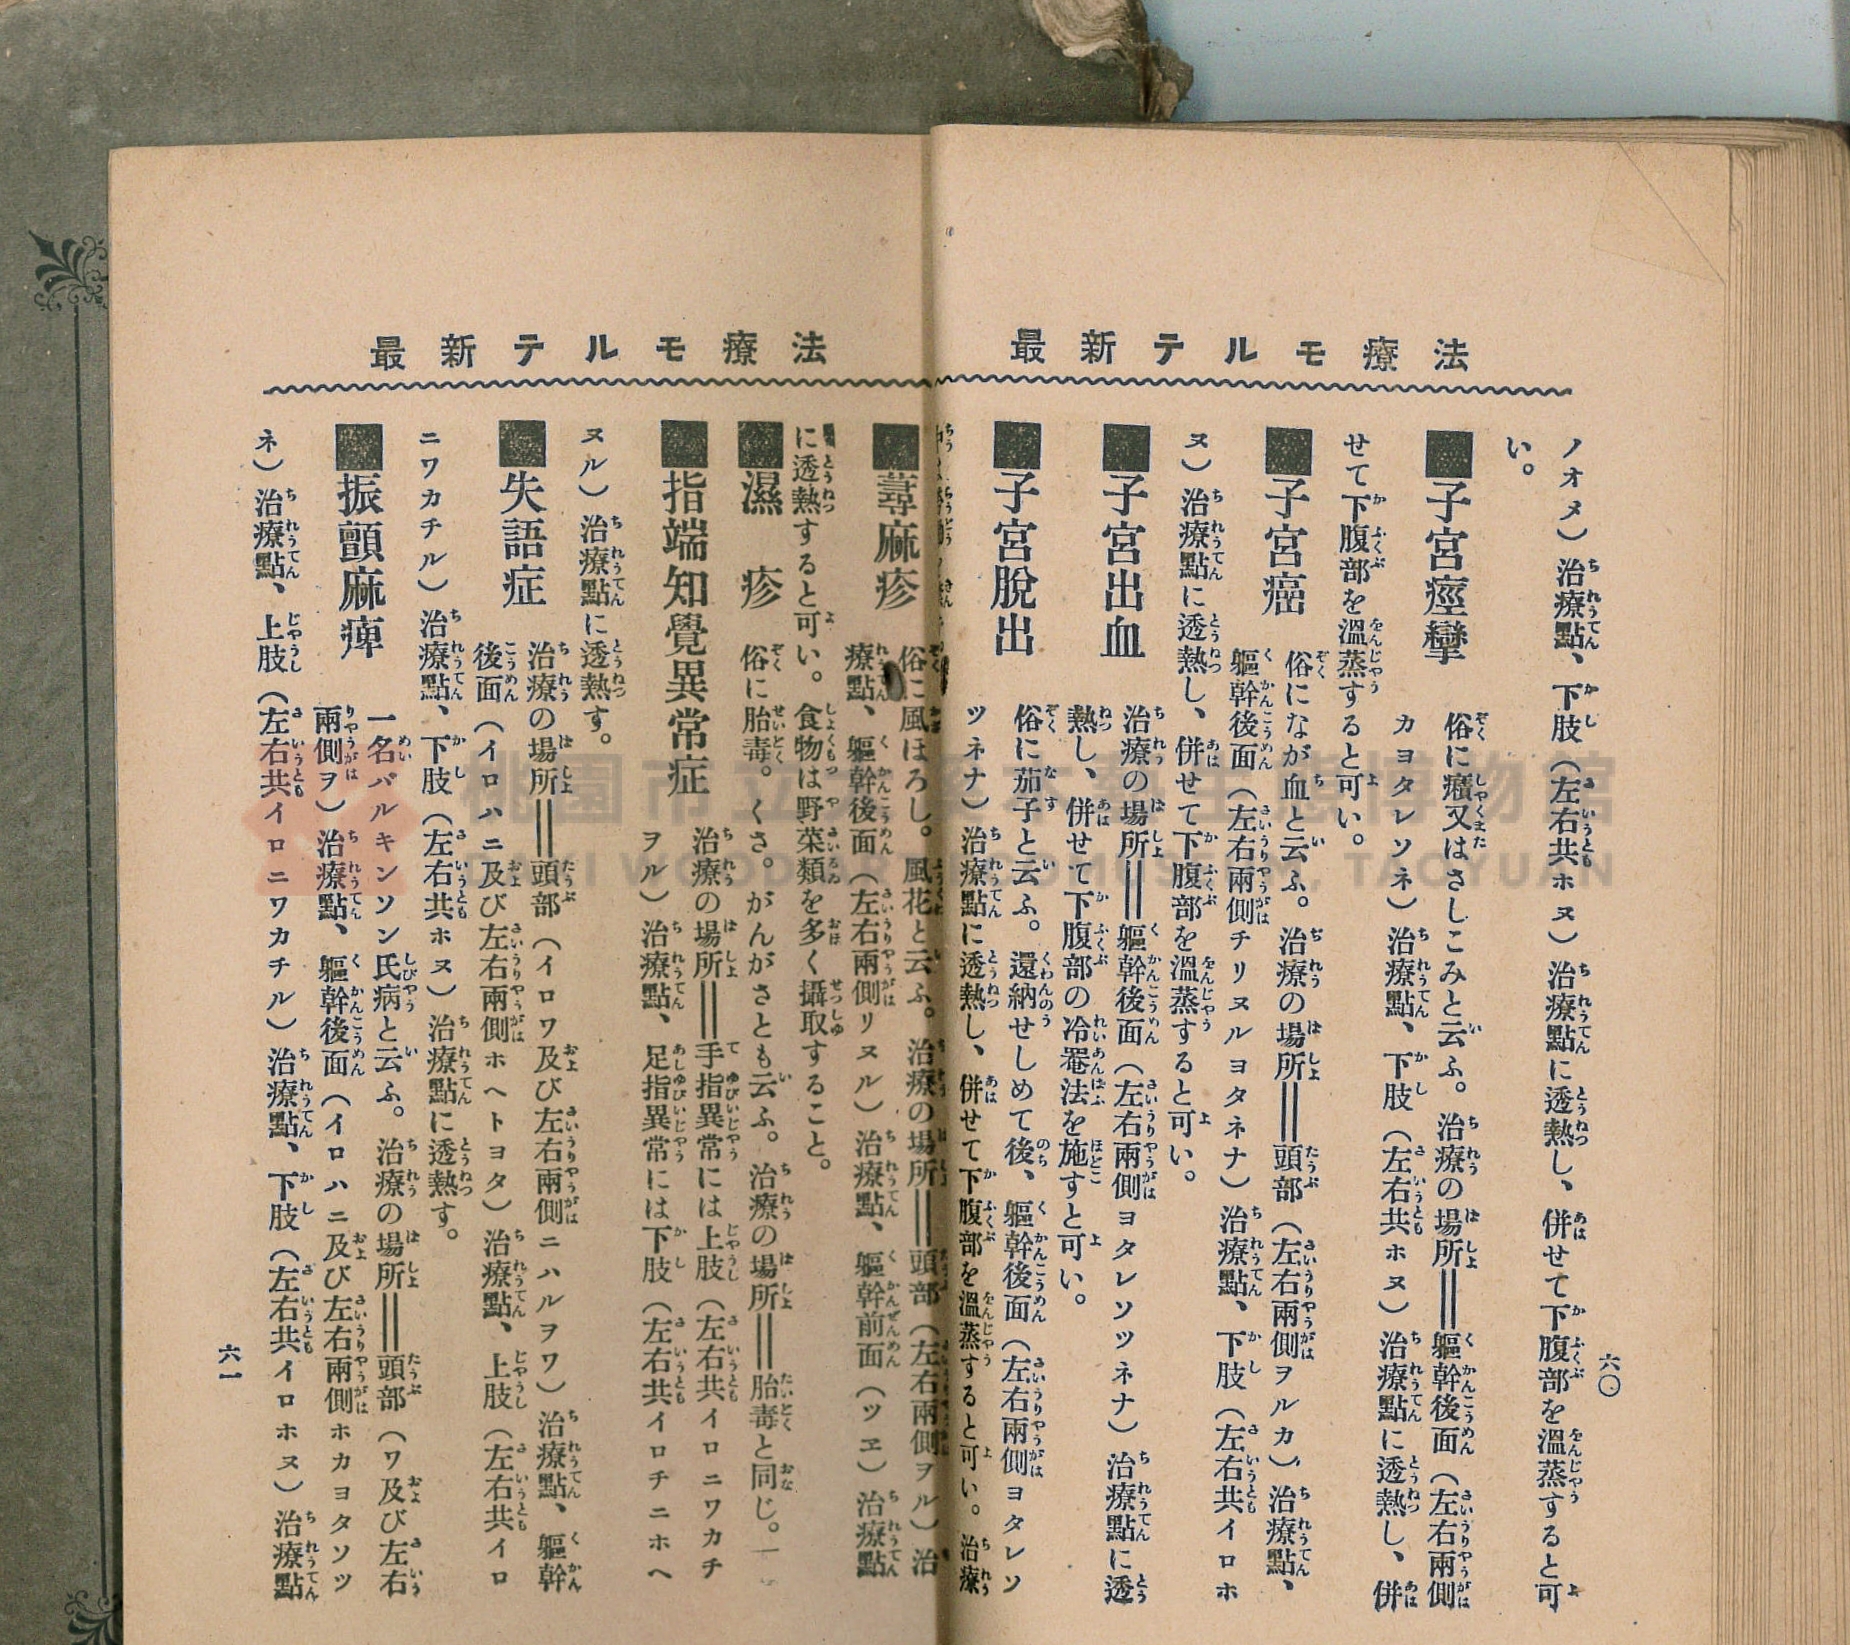 最新テルモ療法
ノオヌ）治療點、下肢（左右共ホヌ）治療點に透熱し、併せて下腹部を溫蒸すると可
い。
■子宮痙攣
俗に癪又はさしこみと云ふ。治療の場所＝軀幹後面（左右兩側
カヨタレソネ）治療點、下肢（左右共ホヌ）治療點に透熱し、併
せて下腹部を溫蒸すると可い。
■子宮癌
俗になが血と云ふ。治療の場所＝頭部（左右兩側ヲルカ）治療點、
軀幹後面（左右兩側チリヌルヨタネナ）治療點、下肢（左右共イロホ
ヌ）治療點に透熱し、併せて下腹部を溫蒸すると可い。
■子宮出血
治療の場所＝軀幹後面（左右兩側ヨタレソツネナ）治療點に透
熱し、併せて下腹部の冷罨法を施すと可い。
■子宮脫出
俗に茄子と云ふ。還納せしめて後、軀幹後面（左右兩側ヨタレソ
ツネナ）治療點に透熱し、併せて下腹部を溫蒸すると可い。治療
六〇
最新テルモ療法
■蕁麻疹
俗に風ほろし。風花と云ふ。治療の場所＝頭部（左右兩側ヲル）治
療點、軀幹後面（左右兩側リヌル）治療點、軀幹前面（ツヱ）治療點
に透熱すると可い。食物は野菜類を多く攝取すること。
■濕疹
俗に胎毒。くさ。がんがさとも云ふ。治療の場所＝胎毒と同じ。
■指端知覺異常症
治療の場所＝手指異常には上肢（左右共イロニワカチ
ヲル）治療點、足指異常には下肢（左右共イロチニホヘ
ヌル）治療點に透熱す。
■失語症
治療の場所＝頭部（イロワ及び左右兩側ニハルヲワ）治療點、軀幹
後面（イロハニ及び左右兩側ホヘトヨタ）治療點、上肢（左右共イロ
ニワカチル）治療點、下肢（左右共ホヌ）治療點に透熱す。
■振顫麻痺
一名パルキンソン氏病と云ふ。治療の場所＝頭部（ワ及び左右
兩側ヲ）治療點、軀幹後面（イロハニ及び左右兩側ホカヨタソツ
ネ）治療點、上肢（左右共イロニワカチル）治療點、下肢（左右共イロホヌ）治療點
六一